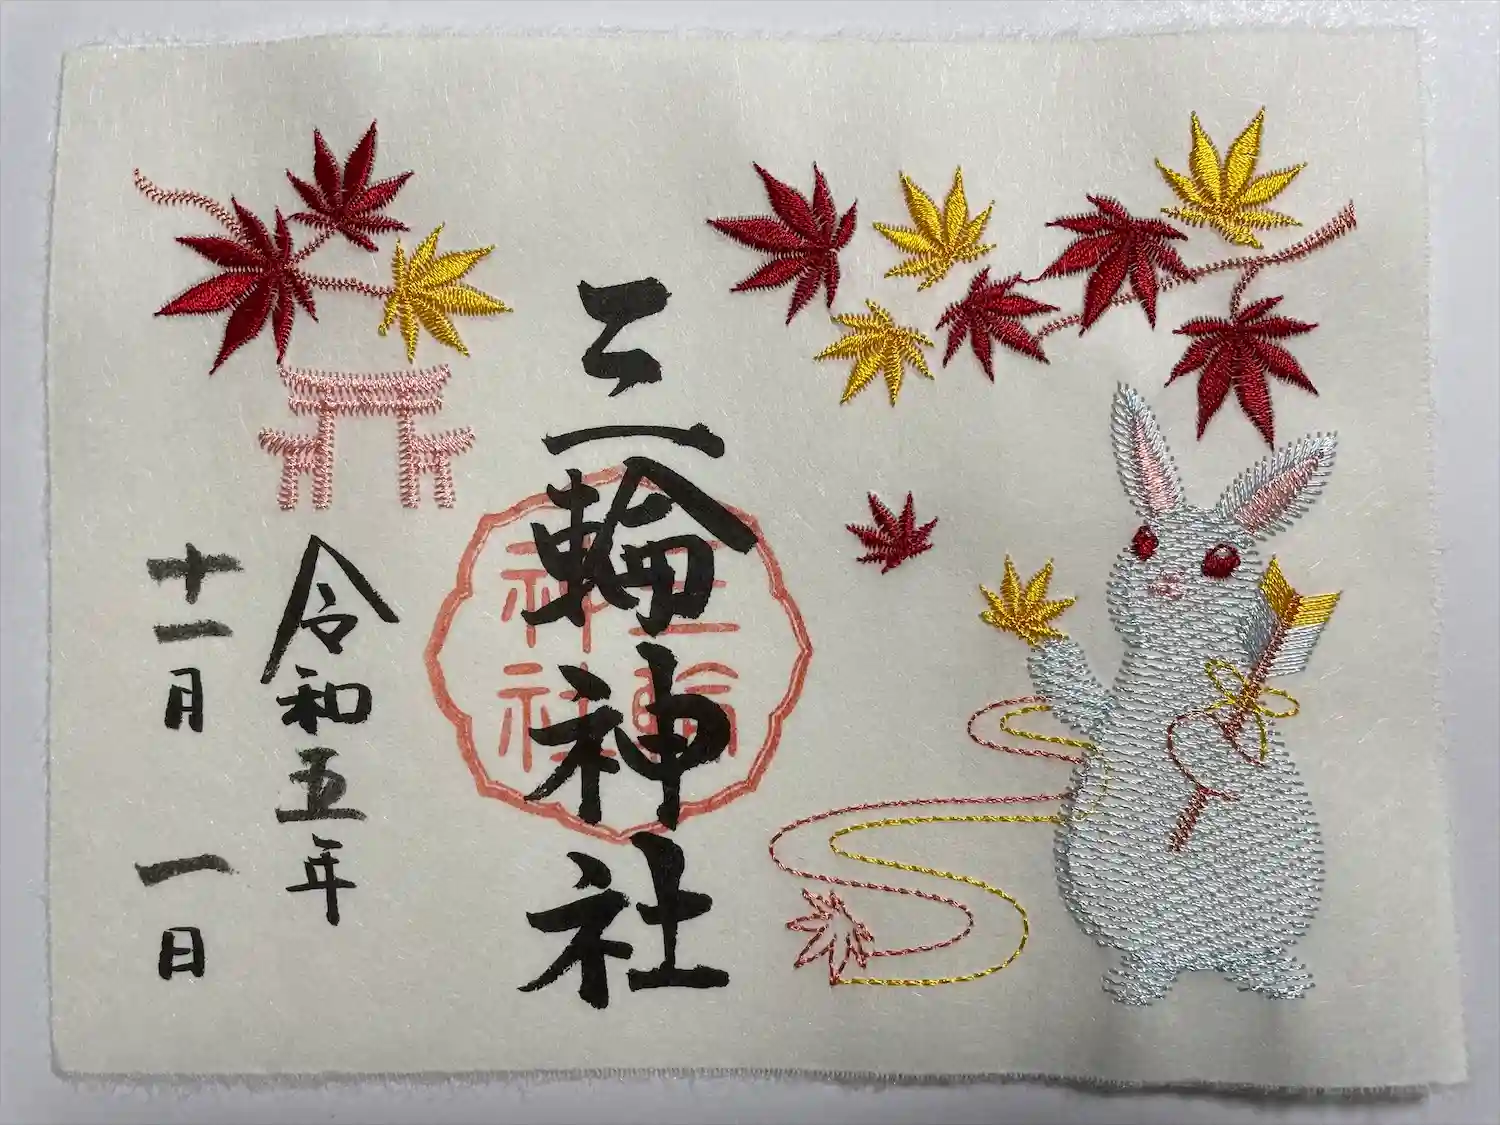 三輪神社
三輪
神社
令和五年
十一月 一日